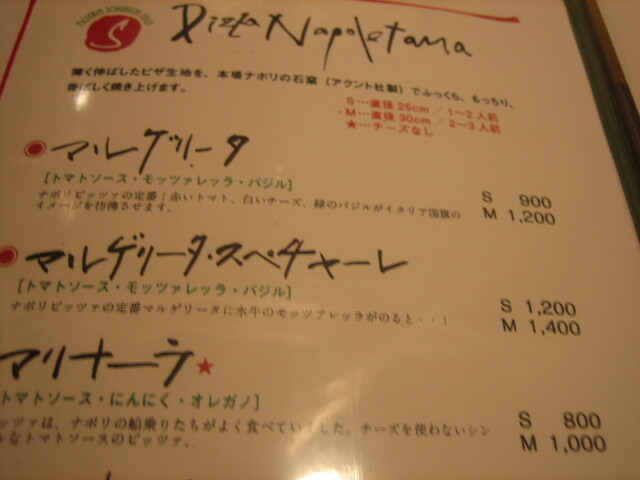 S
Pizza Napoletana
薄く伸ばしたピザ生地を、本場ナポリの石窯（アクント社製）でふっくら、もっちり、
香ばしく焼き上げます。
S…直径25cm／1～2人前
M…直径30cm／2～3人前
★…チーズなし
マルゲリータ
[トマトソース・モッツァレッラ・バジル]
ナポリピッツァの定番！赤いトマト、白いチーズ、緑のバジルがイタリア国旗の
イメージを彷彿させます。
S 900
M 1,200
マルゲリータ・スペチャーレ
[トマトソース・モッツァレッラ・バジル]
ナポリピッツァの定番マルゲリータに水牛のモッツアレッラがのると・・！
S 1,200
M 1,400
マリナーラ★
トマトソース・にんにく・オレガノ]
ッツァは、ナポリの船乗りたちがよく食べていました。チーズを使わないシン
なトマトソースのピッツァ。
S 800
M 1,000